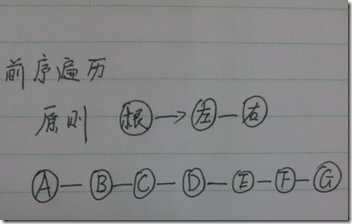 前序遍历
原则 根→左—右
A—B—C—D—E—F—G